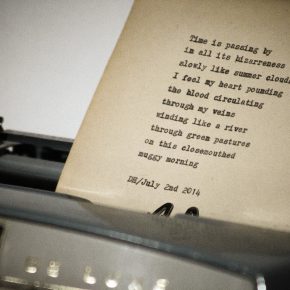 Time is passing by
in all its bizarreness
slowly like summer clouds
I feel my heart pounding
the blood circulating
through my weins
winding like a river
through green pastures
on this closemouthed
muggy morning
DH/July 2nd 2014
DE LUXE